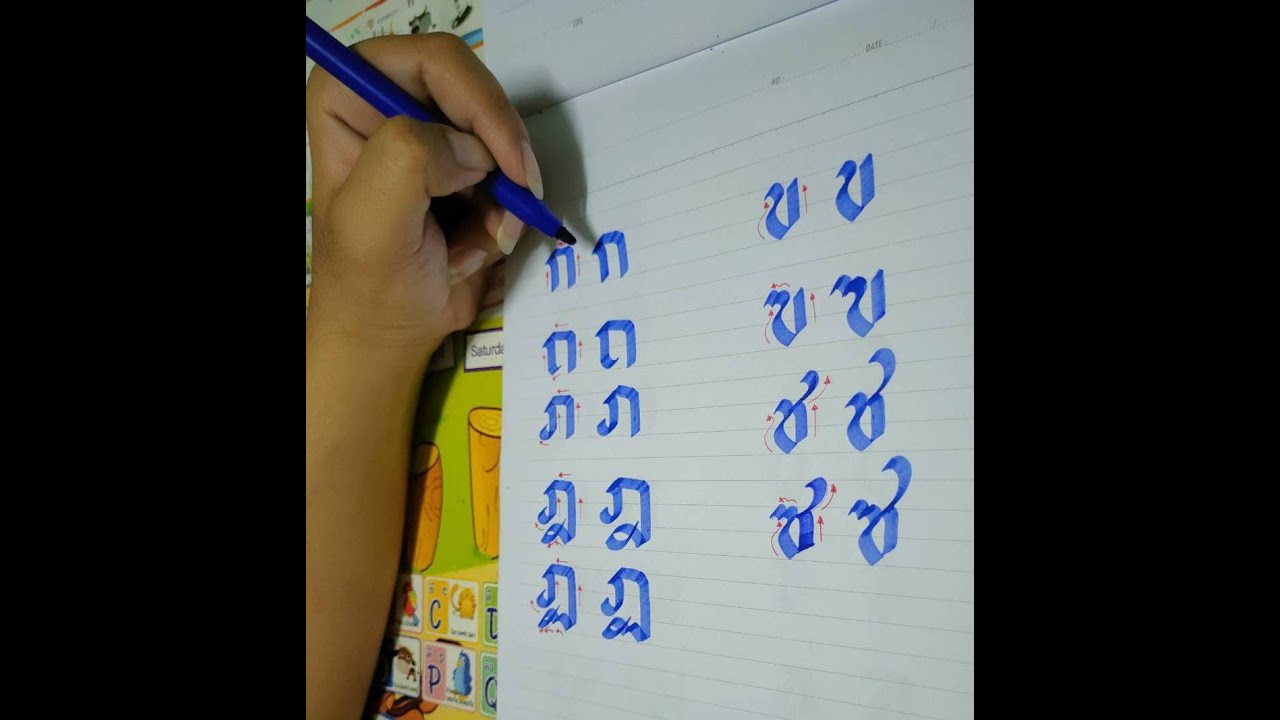 DATE:
NO:
ก ก
ถ ถ
ภ ภ
ฎ ฎ
ฏ ฏ
ข ข
ฃ ฃ
ช ช
ซ ซ
Saturda
C
P
Q